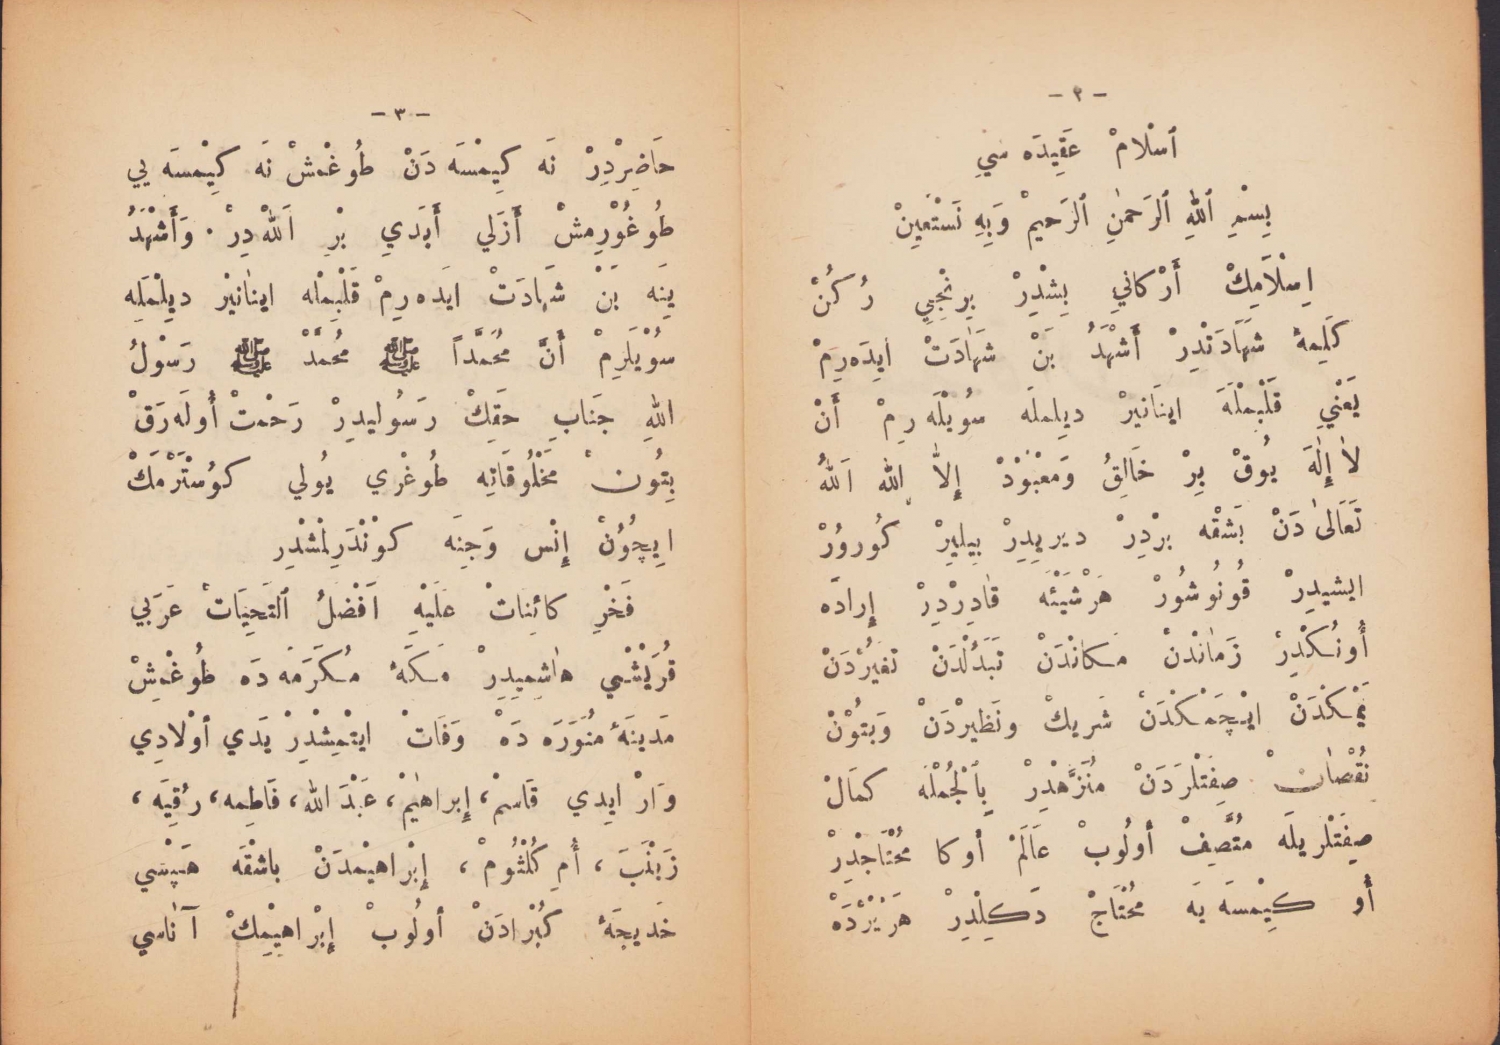 - ٢ -
اِسْلَامْ عَقِيدَه سِي
بِسْمِ ٱللهِ ٱلرَّحمٰنِ ٱلرَّحيمْ وَبِهِ نَسْتَعِينْ
اِسْلَامِكْ أَرْكانِي بِشْدِرْ بِرِنْجِيِ رُكُنْ
كَلِمِهٔ شَهَادَتْدِرْ أَشْهَدُ بَنْ شَهَادَتْ اَيِدَه رِمْ
يَعْنِي قَلْبِمْلَهَ اينَانِيرْ ديلِملَه سُويْلَه رِمْ أَنْ
لاٰ إِلٰهَ يُوقْ بِرْ خَالِقُ وَمَعْبُودْ إِلاّٰ اللهِ اَللهُ
تَعَالىٰ دَنْ بَشْقَه بِرْدِرْ ديرِيدِرْ بِيلِيرْ كُورُورْ
ايشيدِرْ قُونُوشُورْ هَرْشَيْئَه قَادِرْدِرْ إِرادَه
أُونُكْدِرْ زَمَانْدَنْ مَكانْدَنْ تَبَدُّلْدَنْ تَغَيُّرْدَنْ
يَمْكْدَنْ ايْچَمَكْدَنْ شَريكْ ونَظيرْدَنْ وَبتُونْ
نُقْصَانْ صِفَتْلَرْدَنْ مُنَزَّهْدِرْ بِٱلْجُمْلَه كَمَالْ
صِفَتْلَريلَه مُتَّصِفْ أولُوبْ عَالَمْ أوكا مُحْتَاجْدِرْ
أو كِيمْسَه يَه مُحْتَاجْ دَكِلْدِرْ هَرْيَرْدَه
- ٣ -
حَاضِرْدِرْ نَه كِيِمْسَه دَنْ طُوغْمْشْ نَه كِيِمْسَه يِي
طُوغُوْرِمِشْ أَزَلي أَبَدي بْرِ اَللهْ دِرْ. وَأَشْهَدُ
يِنَه بَنْ شَهَادَتْ ايَدَه رِمْ قَلْبِمْله اينٰانِيْر ديلِمْلَه
سُوْيلَرِمْ أَنَّ مُحَمَّداً ﷺ مُحَمَّدْ ﷺ رَسُولُ
اللهِ جَنَابِ حَقِكْ رَسُوليدِرْ رَحْمتْ أُولَه رَقْ
بِتُونْ مَخْلُوقَاتِه طُوغْري يُولي كوُسْتَرْمَكْ
ايِچُوُنْ إِنْس وَجِنَه كوْنْدَرِلْمْشْدِر
فَخْرِ كائِنِاتْ عَلَيْهِ اَفْضَلُ ٱلتَحِيَاتْ عَرَبي
قُرَيْشْي هٰاشِمِيدِرْ مَكَّهٔ مُكَرَمَه دَه طُوغْمِشْ
مَدينَهٔ مُنَوَرَه دَهْ وَفَاتْ ايتْمِشْدِرْ يَدي أوْلَادِي
وَارْ ايِدي قَاسِمْ، إِبراهيْمْ، عَبْدَ الله، فَاطِمِه، رُقِيَه،
زَيْنَبَ، أُمِ كُلْثُومْ، إِبْراهيْمْدَنْ باشْقَه هَپْسي
خَديجَهٔ كُبْرادَنْ أولُوبْ إِبْراهيِمْكْ آنٰاسي